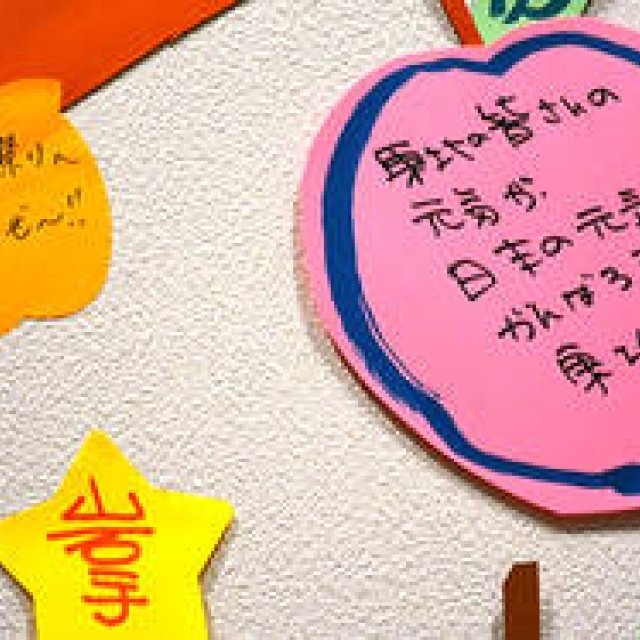 東北の皆さんの
元気が、
日本の元気
がんばろ
東北
岩手